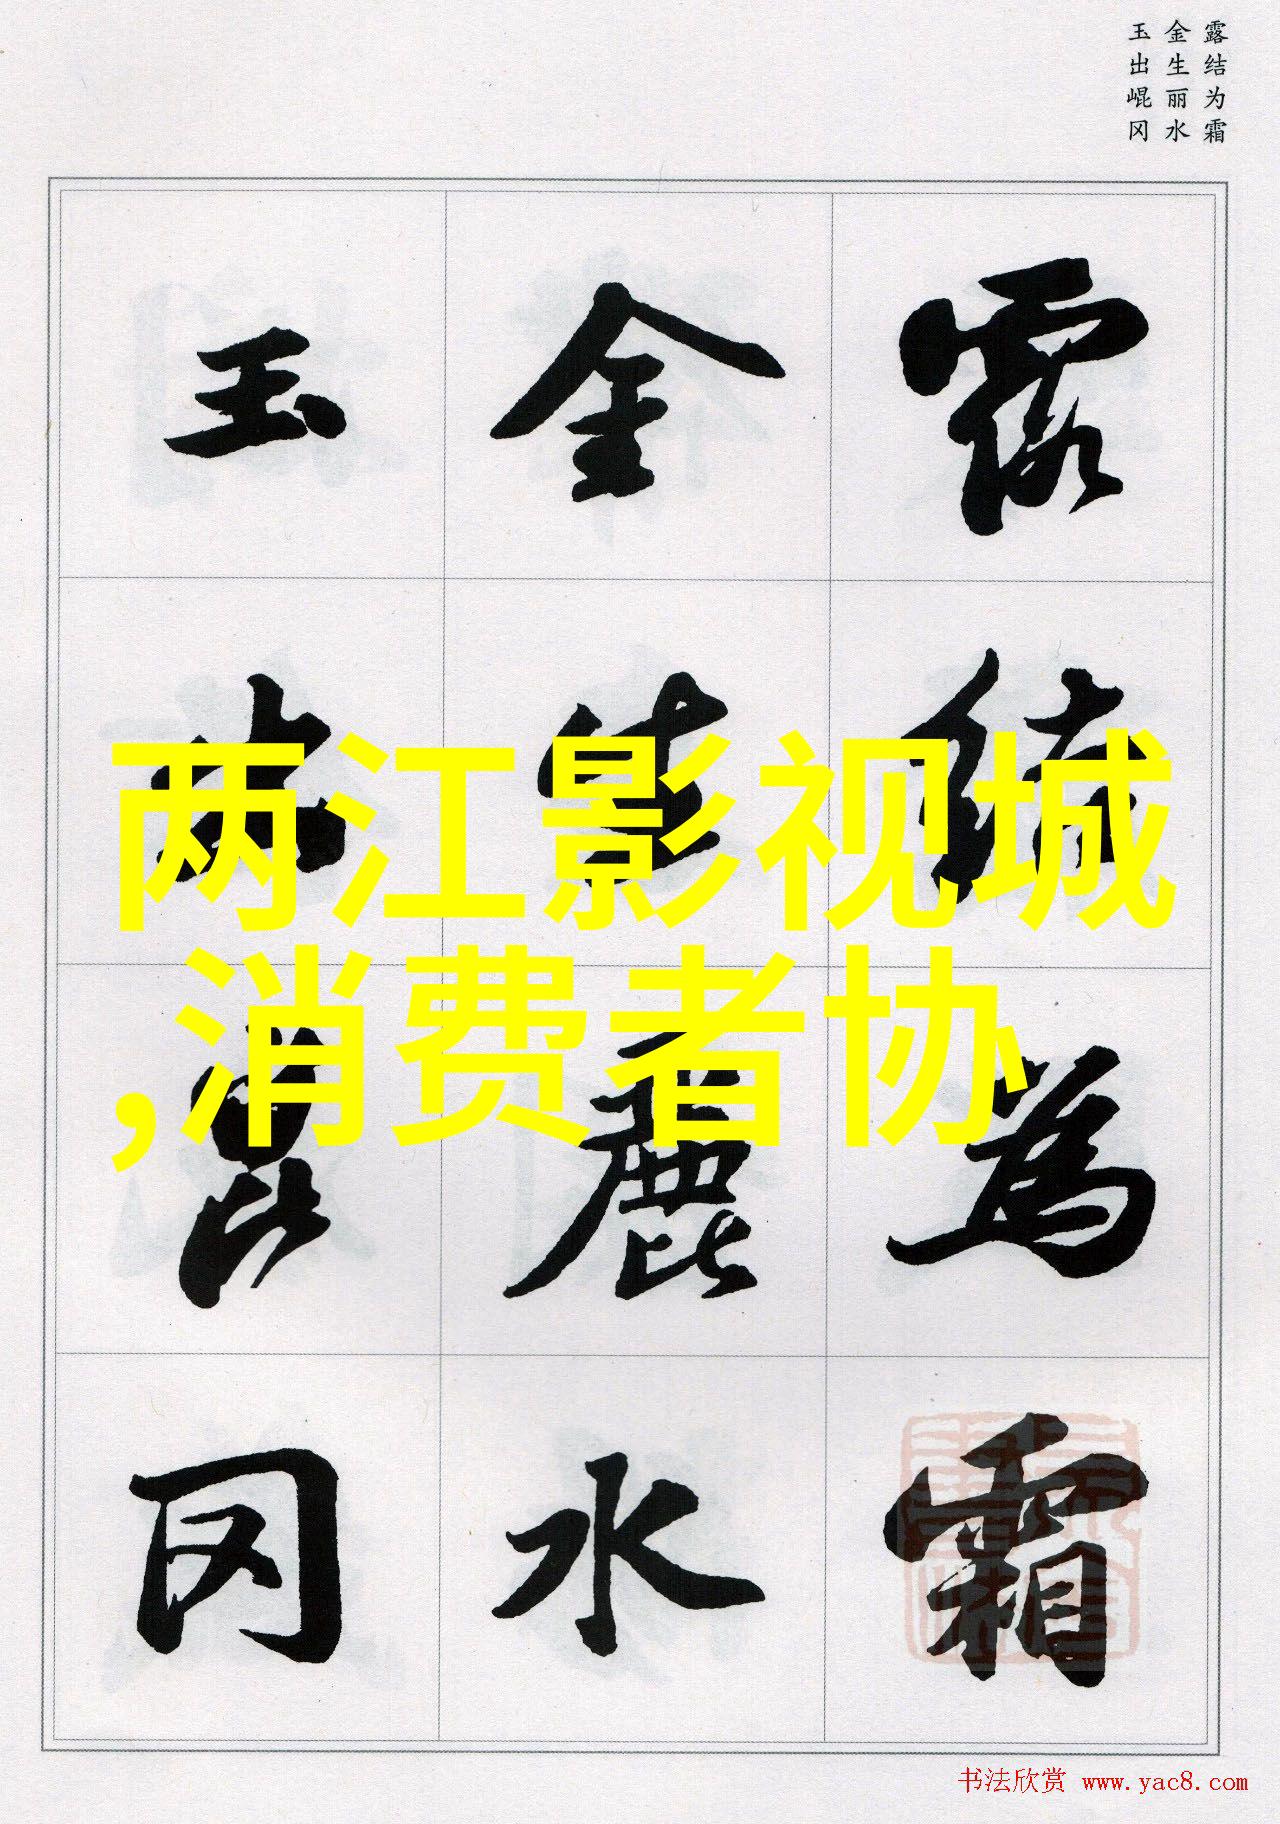 露结为霜
金生丽水
玉出崐冈
露結為霜
金生麗水
玉出崑冈
两江影视城
,消费者协
书法欣赏 www.yac8.com